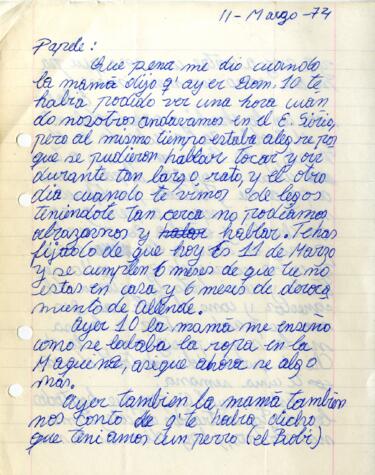 11-Marzo-74
Papde:
Que pena me dio cuando
la mamá dijo q' ayer Dom. 10 te
había podido ver una hora cuan
do nosotros andavamos en el E. Sirio,
pero al mismo tiempo estaba alegre por
que se pudieron hablar tocar y oir
durante tan largo rato, y el otro
dia cuando te vimos de lejos
teniendote tan cerca no podiamos
abrazarnos y hablar. Te has
fijado de que hoy Es 11 de Marzo
y se cumplen 6 meses de que tu no
estas en casa y 6 meses de deroca
miento de Allende.
Ayer 10 la mama me enseño
como se lavaba la ropa en la
Maquina, aseque ahora se algo
mas.
Ayer tambien la mamá tambien
nos contó de q' te habia dicho
que teniamos un perro (el Bobi)